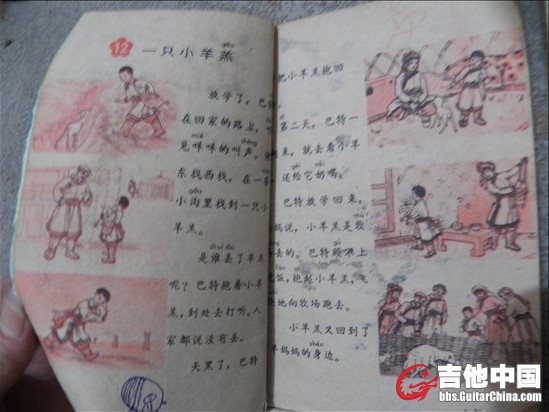 gāo
12 一只小羊羔
放学了，巴特
在回家的路上，
miē shēng
见咩咩的叫声。
东找西找，在一
gōu
小沟里找到一只小
羊羔。
shuí diū
是谁丢了羊羔
呢？巴特抱着小羊
羔，到处去打听。人
家都说没有丢。
天黑了，巴特
把小羊羔抱回
第二天，巴特一
起来，就去看小羊
还给它奶喝。
巴特放学回来，
妈说，小羊羔是牧
gù
丢的。巴特顾不上
吃饭，抱起小羊羔，飞
快地向牧场跑去。
小羊羔又回到了
羊妈妈的身边。
吉他中国
bbs.GuitarChina.com